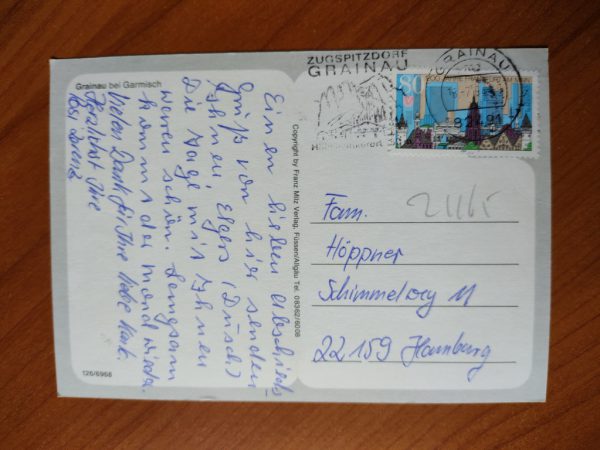 Grainau bei Garmisch
Einen lieben Abschieds-
gruß von hier senden
Ihnen, Elges (Dusch)
Die Tage mit Ihnen
waren schön. Langsam
kommt der Mond wieder.
Vielen Dank für Ihre liebe Karte.
Herzlichst Ihre
126/6968
Copyright by Franz Milz Verlag, Füssen/Allgäu Tel. 08362/6008
ZUGSPITZDORF
GRAINAU
GRAINAU
80
21165
Fam.
Höppner
Schimmelweg 11
22159 Hamburg